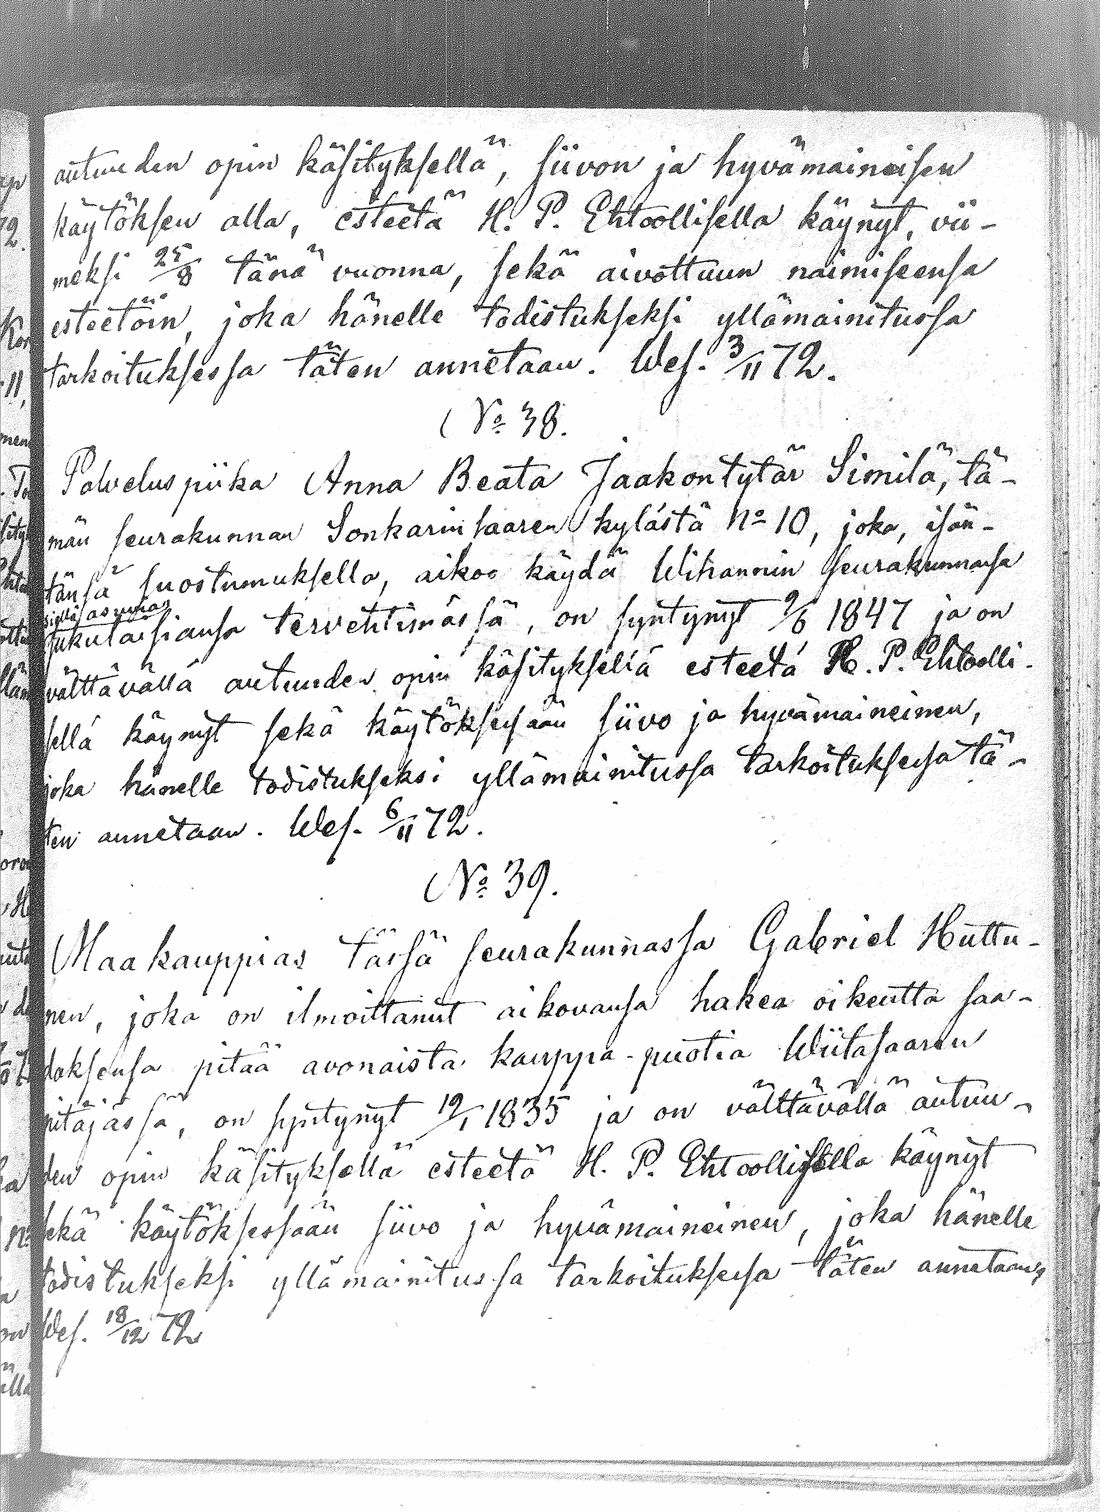 autuuden opin käsityksellä, siivon ja hyvämaineisen
käytöksen alla, esteetä H. P. Ehtoollisella käynyt, vii-
meksi 25/8 tänä vuonna, sekä aivottuun naimiseensa
esteetöin, joka hänelle todistukseksi yllämainitussa
tarkoituksessa täten annetaan. Wes. 3/11 72.
No 38.
Palveluspiika Anna Beata Jaakontytär Similä, tä-
män seurakunnan Sonkarinsaaren kylästä No 10, joka, isän-
tänsä suostumuksella, aikoo käydä Wihannin seurakunnassa
siellä asuvia
sukulaisiansa tervehtimässä, on syntynyt 9/6 1847 ja on
välttävällä autuuden opin käsityksellä esteetä H. P. Ehtoolli-
sella käynyt sekä käytöksessään siivo ja hyvämaineinen,
joka hänelle todistukseksi yllämainitussa tarkoituksessa tä-
ten annetaan. Wes. 6/11 72.
No 39.
Maakauppias tässä seurakunnassa Gabriel Huttu-
nen, joka on ilmoittanut aikovansa hakea oikeutta saa-
daksensa pitää avonaista kauppa-puotia Wiitasaaren
pitäjässä, on syntynyt 19/1 1835 ja on välttävällä autuu-
den opin käsityksellä esteetä H. P. Ehtoollisella käynyt
sekä käytöksessään siivo ja hyvämaineinen, joka hänelle
todistukseksi yllämainitussa tarkoituksessa täten annetaan.
Wes. 18/12 72